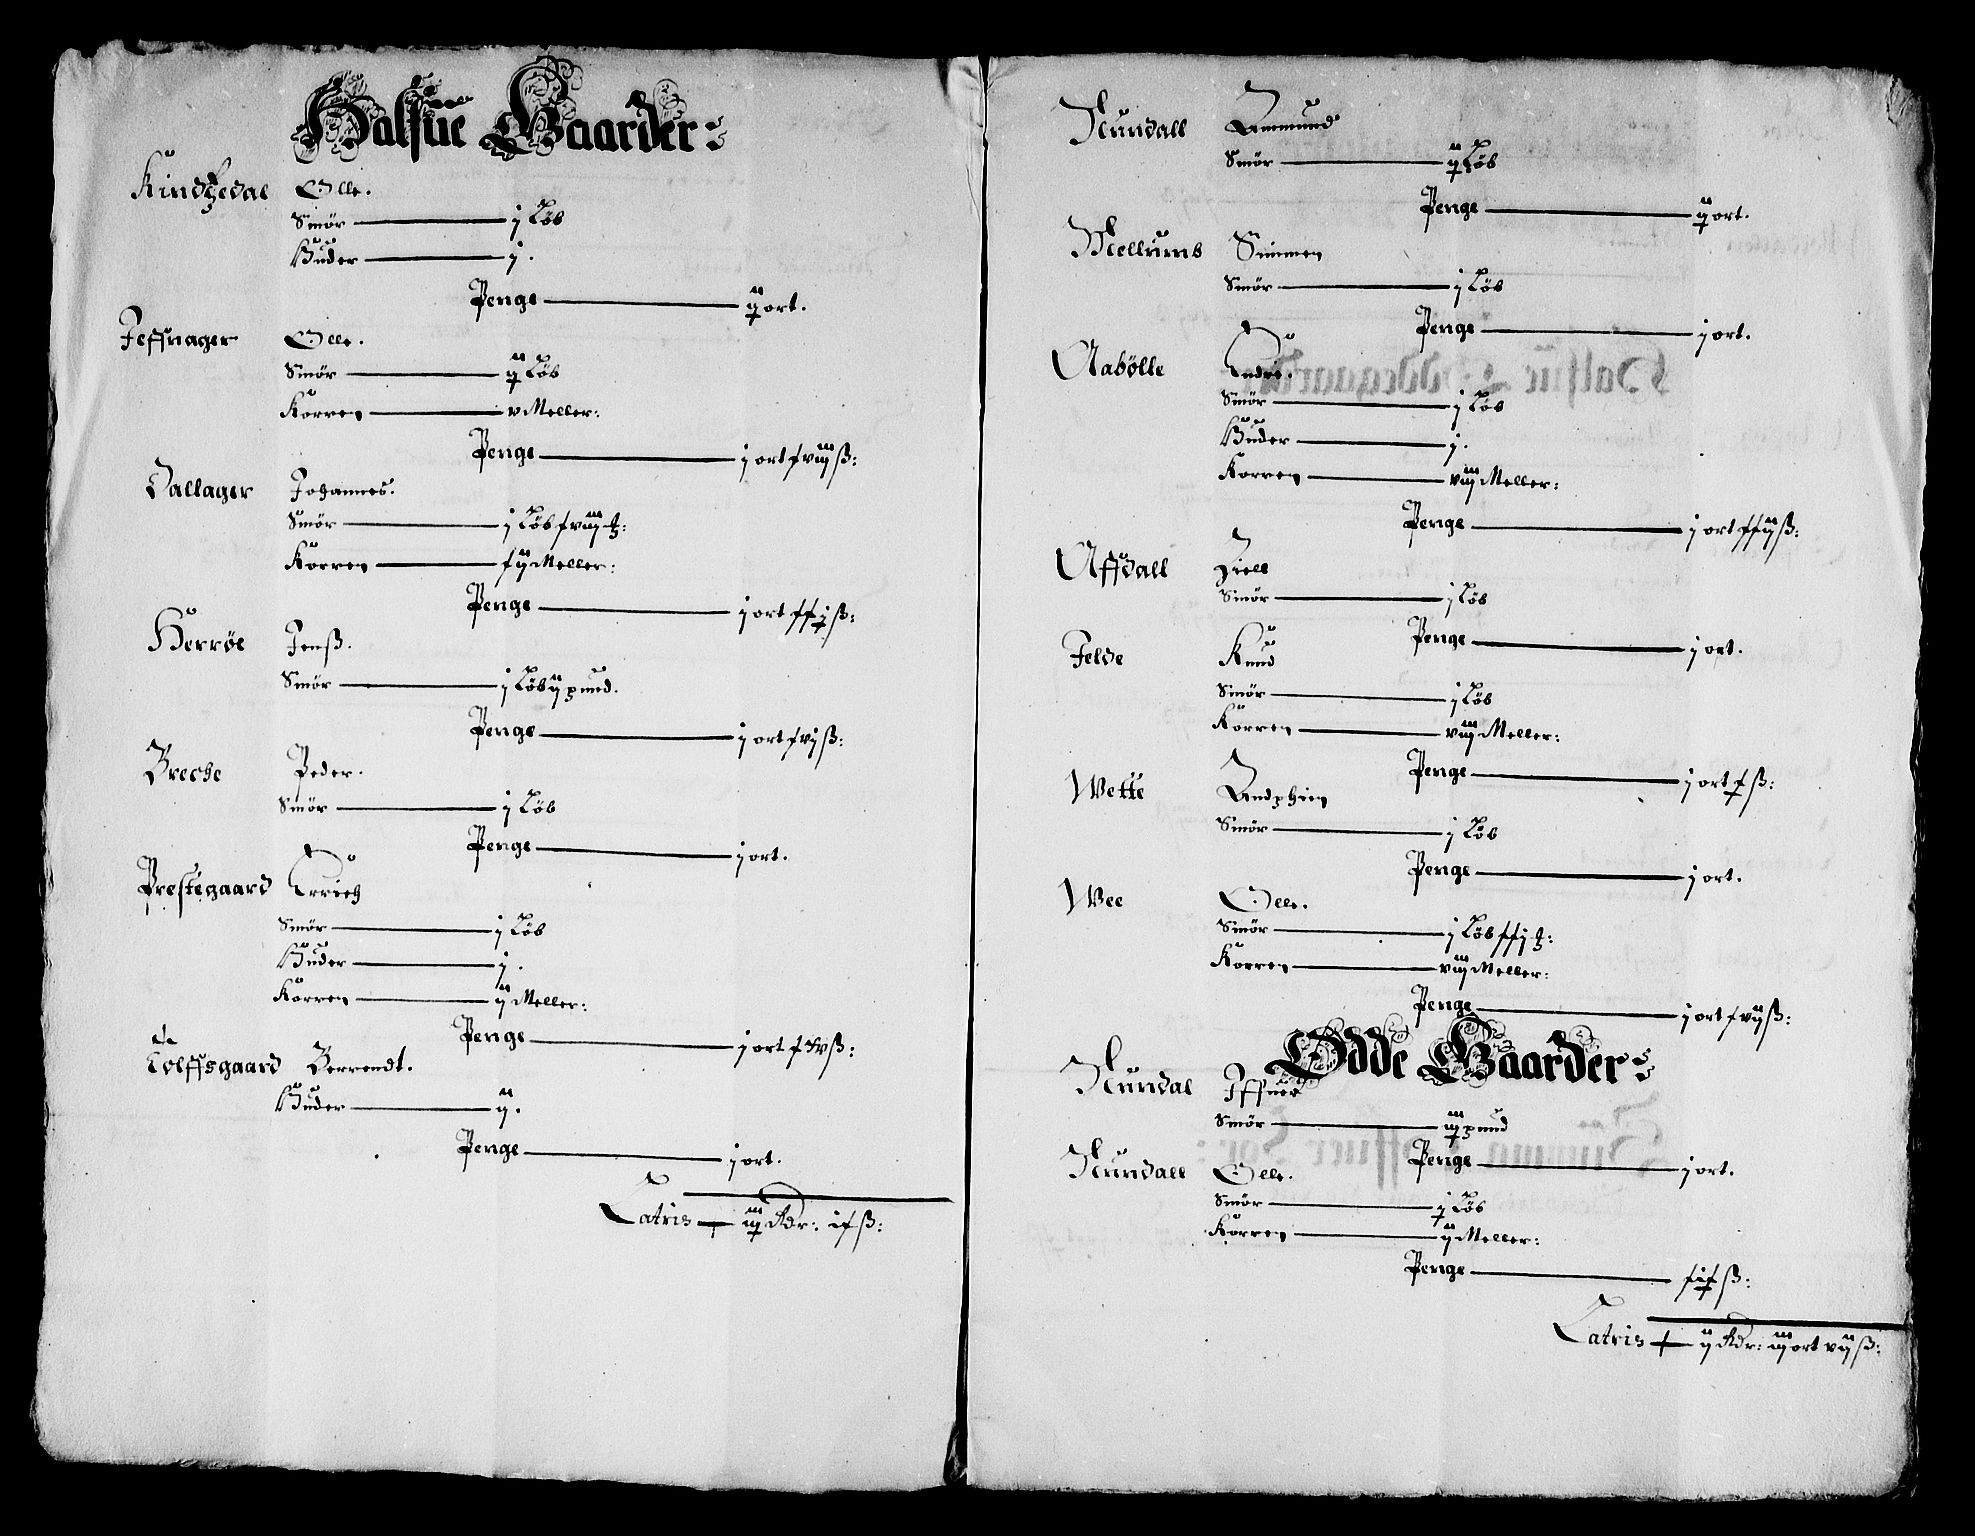 Halfüe Gaarder:
Kindtzedal Olle.
Smör — j Löb
Huder — j.
Penge — ij ort.
Jeffnager Olle.
Smör — ij Löb
Korren — v Meller:
Penge — j ort
Dallager Johannes.
Smör — j Löb
Korren — Meller:
Penge — j ort
Herröe Jenß.
Smör — j Löb ij pund.
Penge — j ort
Breche Peder.
Smör — j Löb
Penge — j ort.
Prestegaard Errich
Smör — j Löb
Huder — j.
Korren — ij Meller:
Penge — j ort
Tolffsgaard Berrendt.
Huder — ij.
Penge — j ort.
Latris — Rdr: ß:
Nundall Ammund
Smör — Löb
Penge — ij ort.
Mellums Simmen
Smör — j Löb
Penge — j ort.
Aabölle Endre.
Smör — j Löb
Huder — j.
Korren — viij Meller:
Penge — j ort
Affdall
Smör — j Löb
Penge — j ort.
Felde Knud
Smör — j Löb
Korren — viij Meller:
Penge — j ort
Wette
Smör — j Löb
Penge — j ort.
Wee Olle.
Smör — j Löb
Korren — viij Meller:
Penge — j ort
Odde Gaarder:
Nundal Iffuer
Smör — pund
Penge — j ort.
Nundall Olle.
Smör — Löb
Korren — ij Meller:
Penge — ß:
Latris — ij Rdr: iij ort vij ß: